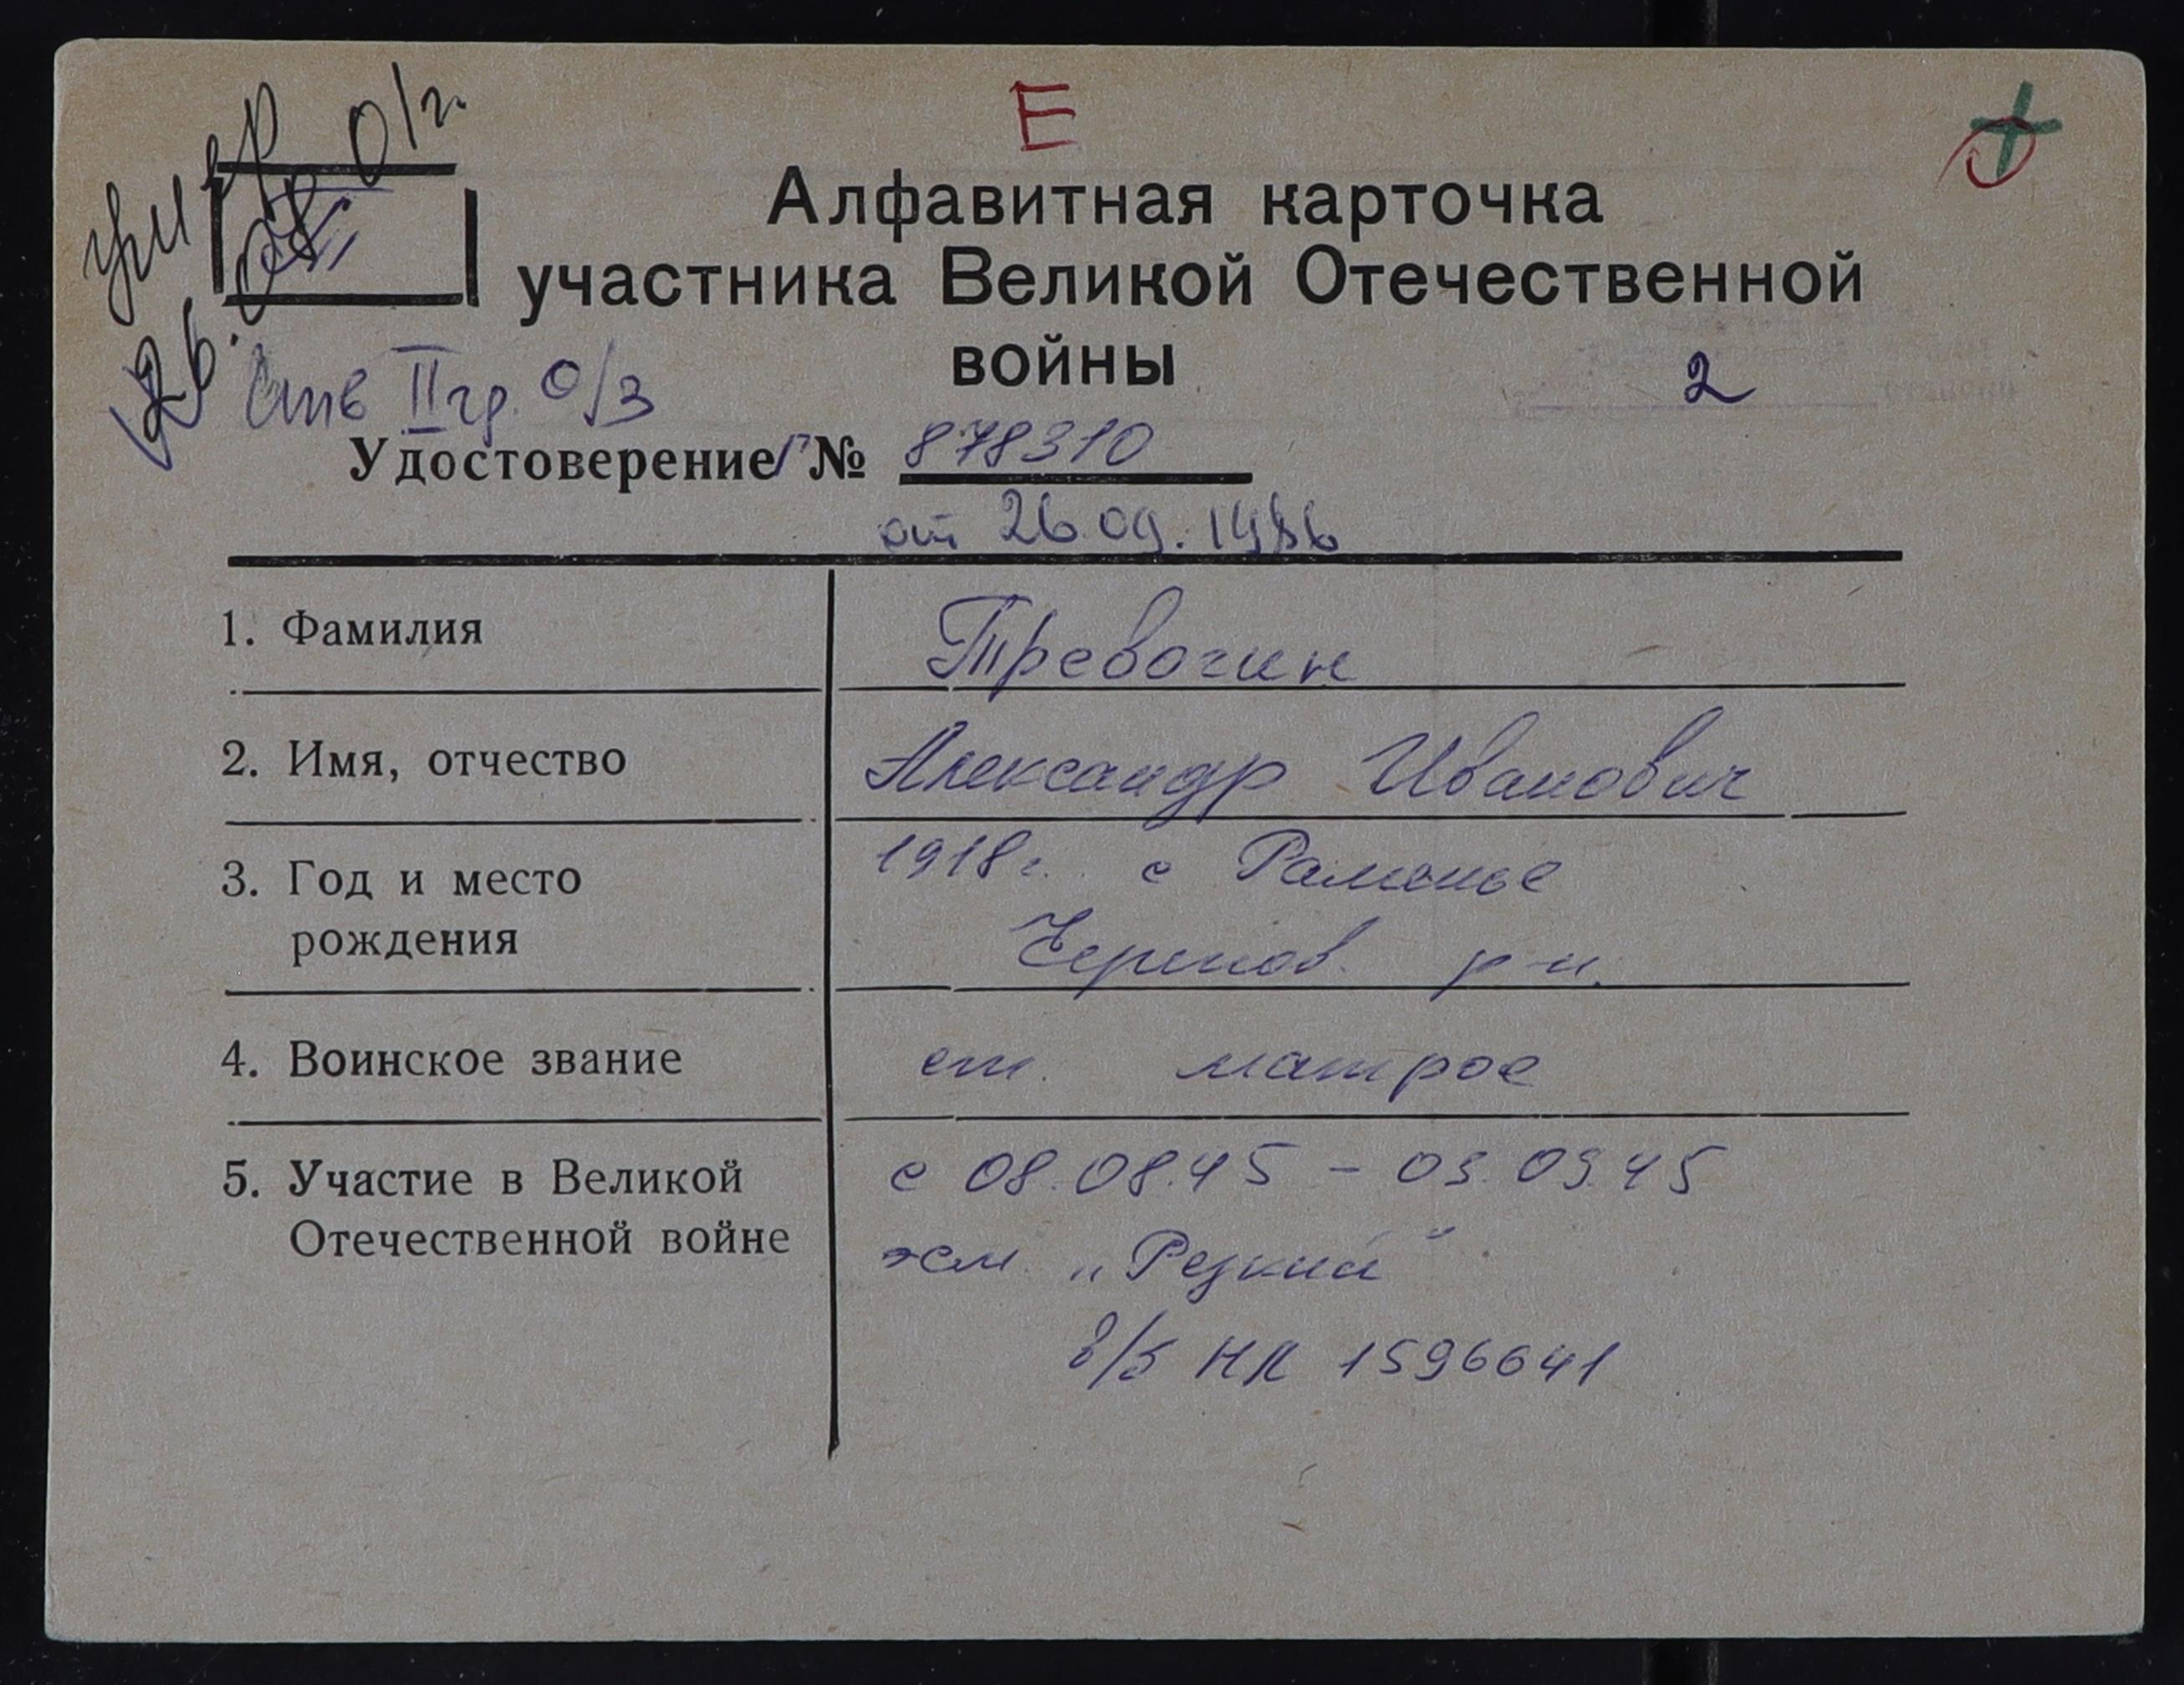 Е
умер
26. 01г.
Алфавитная карточка
участника Великой Отечественной
войны
2
инв II гр. О/З
Удостоверение Г № 878310
от 26.09.1986
1. Фамилия Тревогин
2. Имя, отчество Александр Иванович
3. Год и место 1918г. с Раменье
рождения р-н.
4. Воинское звание ст. матрос
5. Участие в Великой с 08.08.45 - 03.09.45
Отечественной войне эсм. „Резкий"
в/б НЛ 1596641